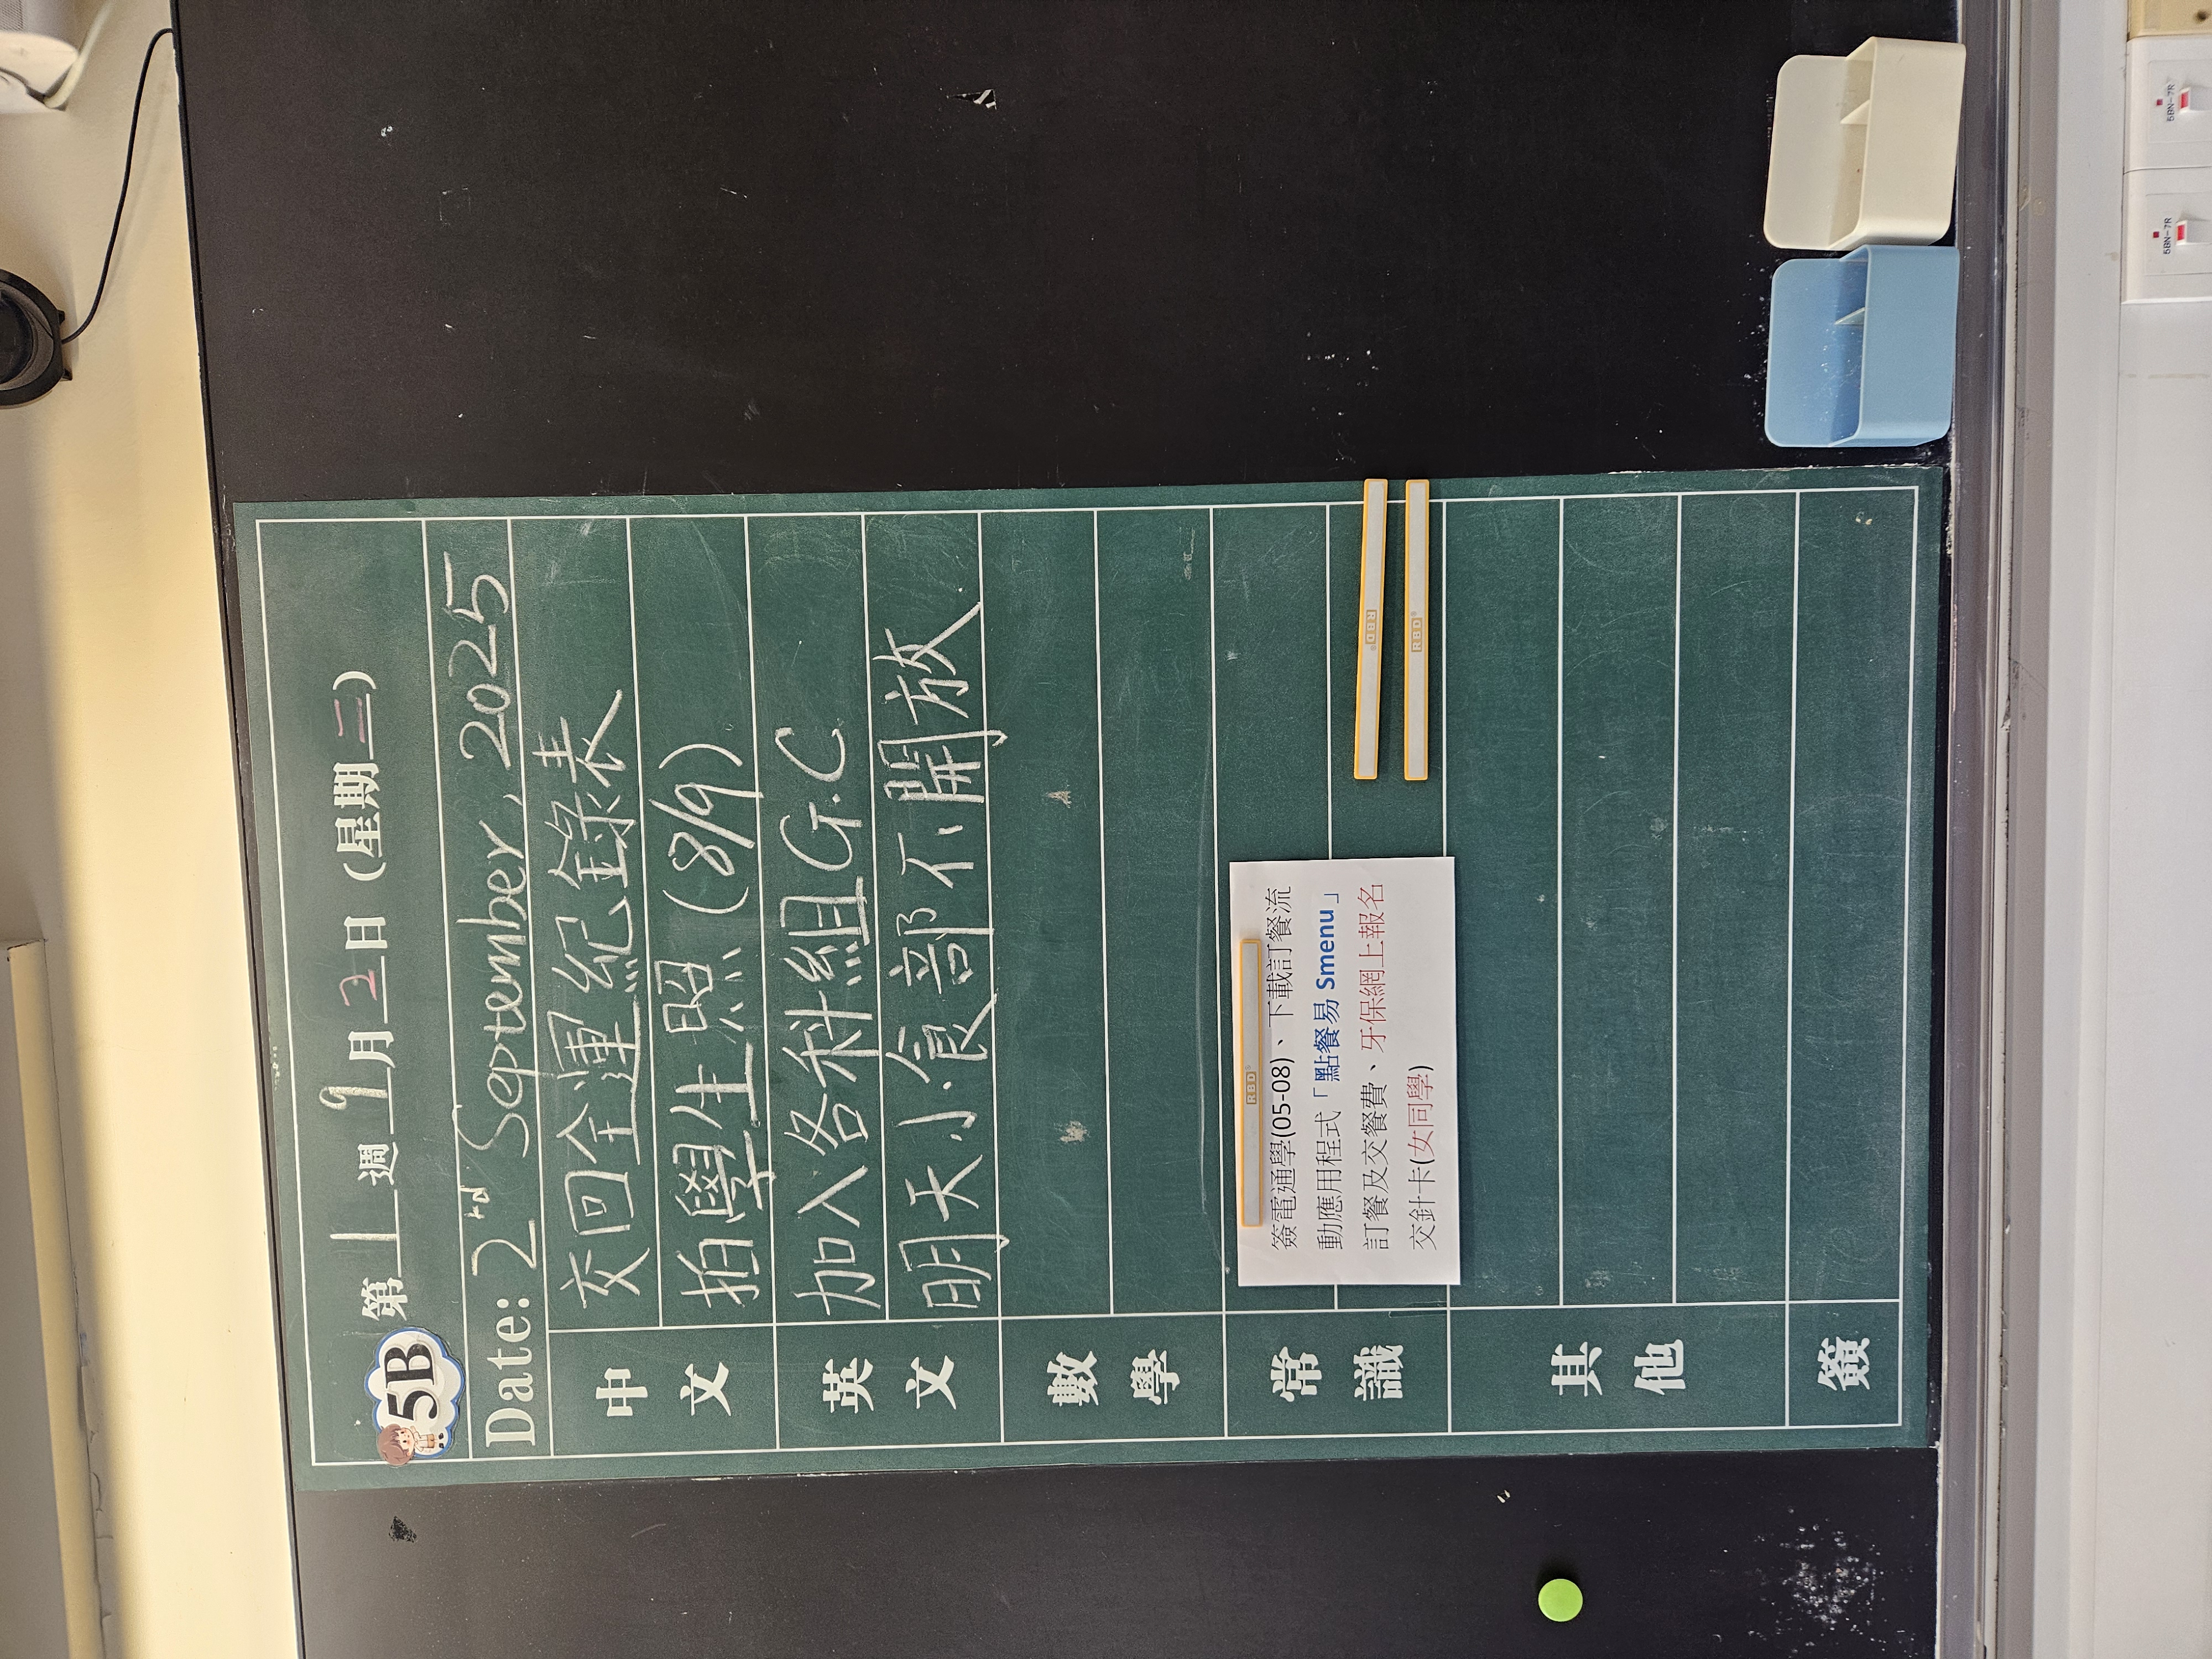 5B 第 1 週 9 月 2 日 (星期 二)
Date: 2nd September, 2025
中文
交回全運紀錄表
拍學生照 (8/9)
英文
加入各科組G.C
明天小食部不開放
數學
常識
簽電通學(05-08)、下載訂餐流
動應用程式「點餐易 Smenu」
訂餐及交餐費、牙保網上報名
交針卡(女同學)
其他
簽
RBD
RBD
RBD
5BN-7R
5BN-7R